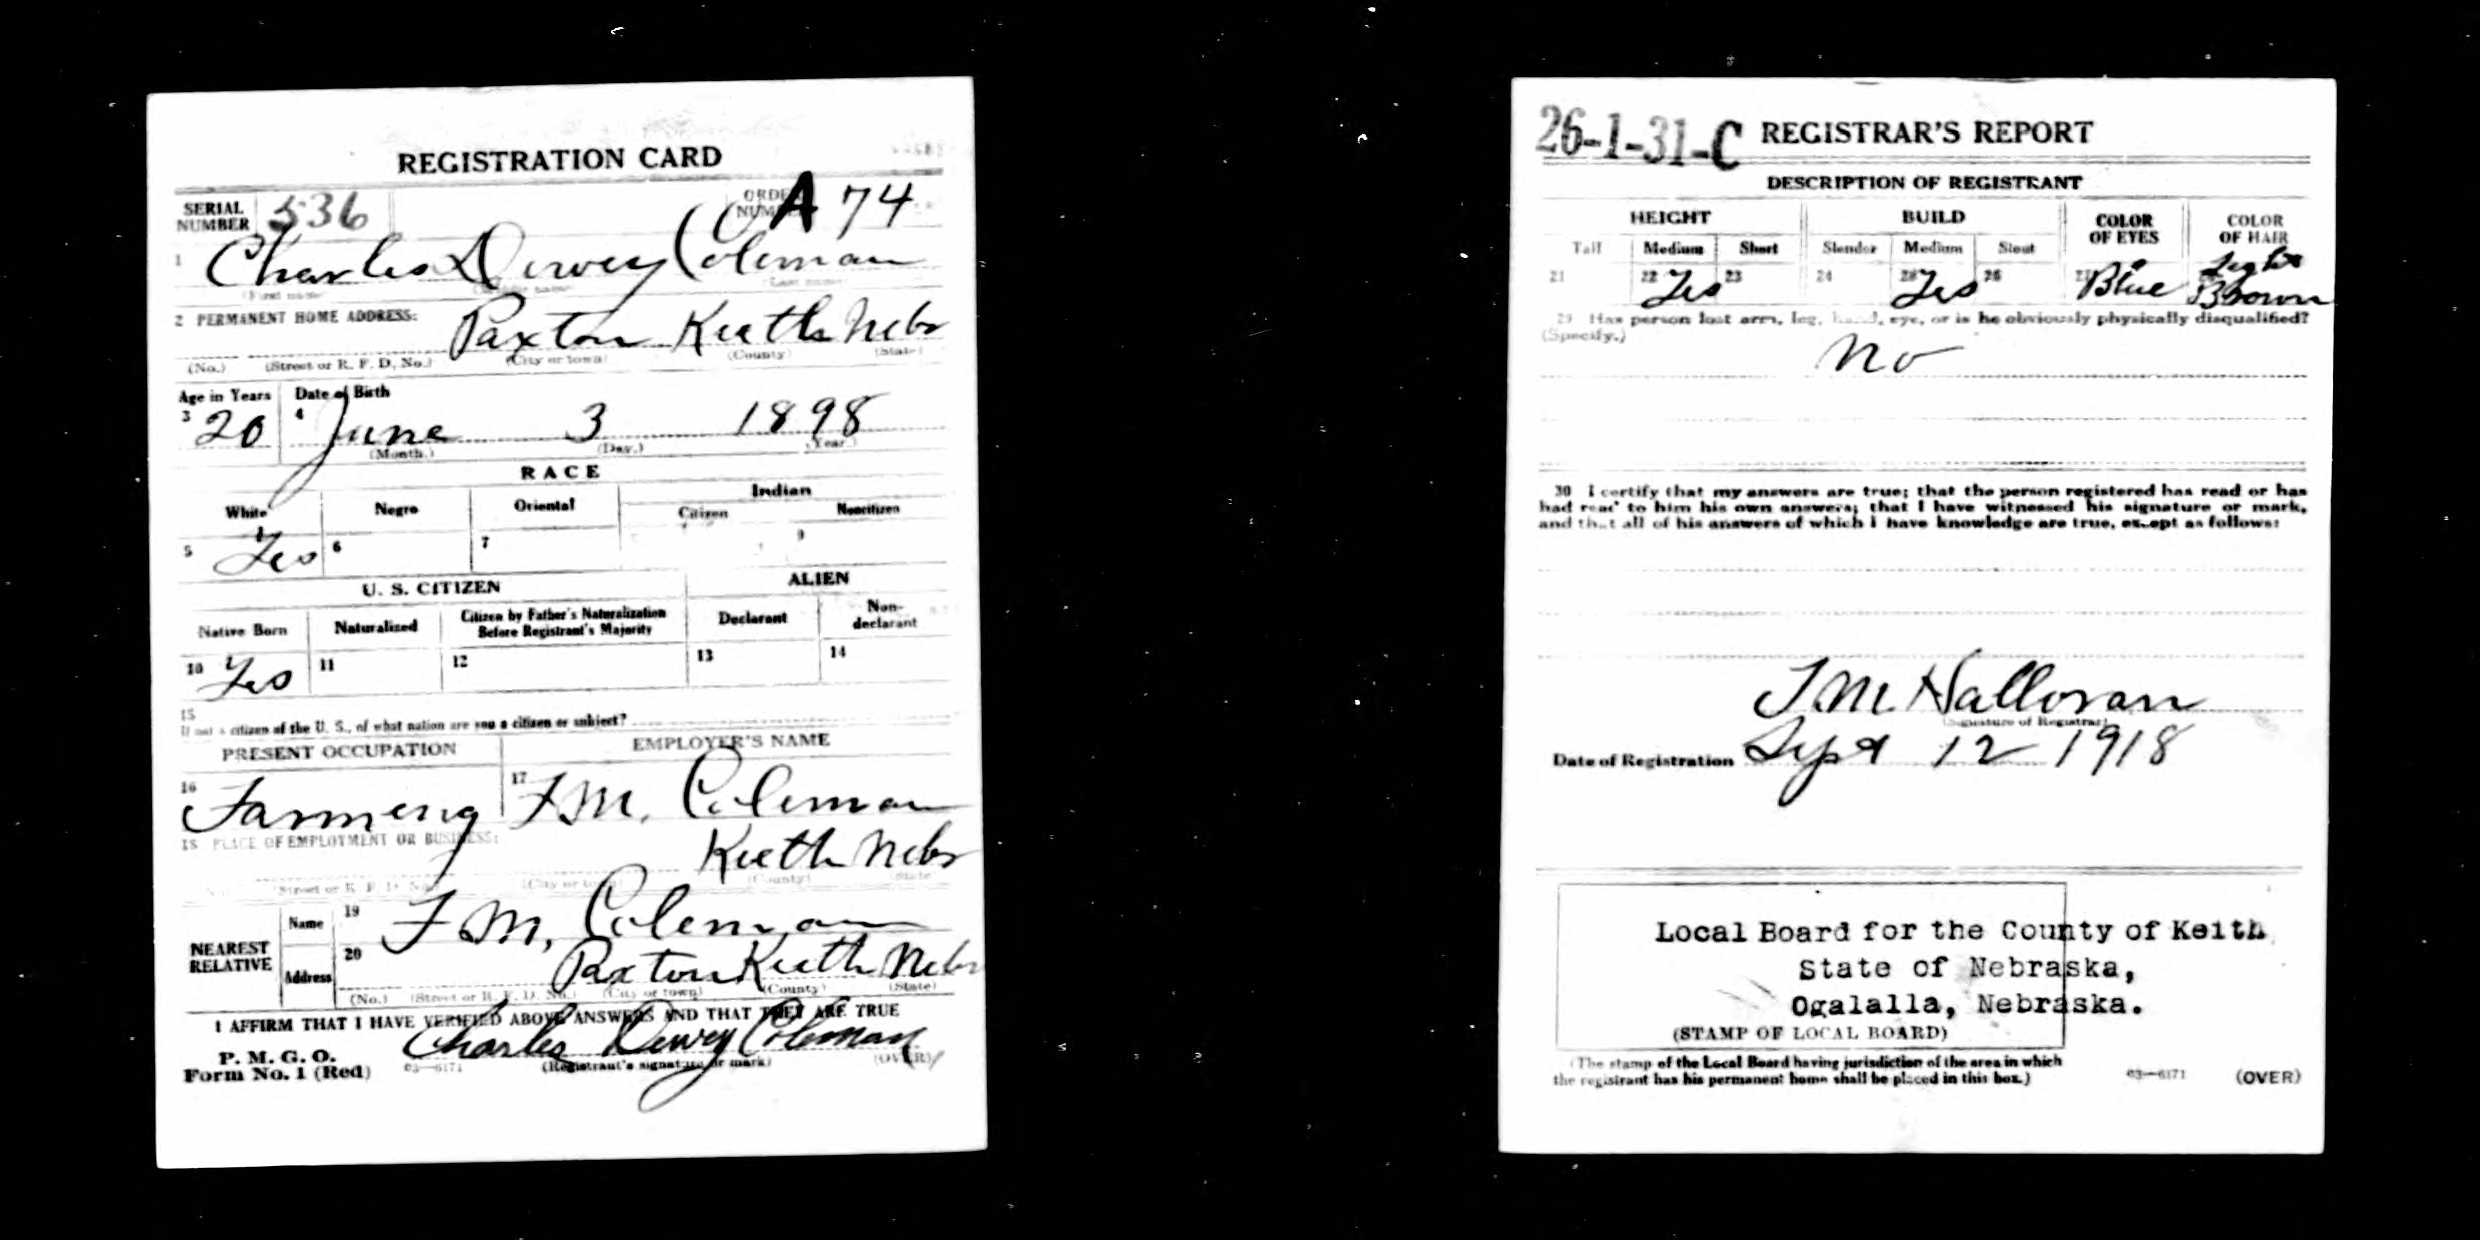 REGISTRATION CARD
SERIAL NUMBER 536
ORDER NUMBER A 74
1 Charles Dewey Coleman
(First name) (Middle name) (Last name)
2 PERMANENT HOME ADDRESS:
Paxton Keith Nebr
(No.) (Street or R. F. D. No.) (City or town) (County) (State)
Age in Years Date of Birth
3 20 4 June 3 1898
(Month.) (Day.) (Year.)
RACE
White Negro Oriental Indian
Citizen Noncitizen
5 Yes 6 7 9
U. S. CITIZEN ALIEN
Native Born Naturalized Citizen by Father's Naturalization Before Registrant's Majority Declarant Non-declarant
10 Yes 11 12 13 14
15
If not a citizen of the U. S., of what nation are you a citizen or subject?
PRESENT OCCUPATION EMPLOYER'S NAME
16 Farming 17 F M. Coleman
18 PLACE OF EMPLOYMENT OR BUSINESS:
Keith Nebr
(Street or R. F. D. No.) (City or town) (County) (State
NEAREST RELATIVE
Name 19 F M, Coleman
Address 20 Paxton Keith Nebr
(No.) (Street or R. F. D. No.) (City or town) (County) (State)
I AFFIRM THAT I HAVE VERIFIED ABOVE ANSWERS AND THAT THEY ARE TRUE
P. M. G. O.
Form No. 1 (Red) 03—6171
Charles Dewey Coleman
(Registrant's signature or mark) (OVER)
26-1-31-C REGISTRAR'S REPORT
DESCRIPTION OF REGISTRANT
HEIGHT BUILD COLOR OF EYES COLOR OF HAIR
Tall Medium Short Slender Medium Stout
21 22 Yes 23 24 25 Yes 26 27 Blue Light Brown
29 Has person lost arm, leg, hand, eye, or is he obviously physically disqualified?
(Specify.)
No
30 I certify that my answers are true; that the person registered has read or has
had read to him his own answers; that I have witnessed his signature or mark,
and that all of his answers of which I have knowledge are true, except as follows:
T. M. Halloran
(Signature of Registrar)
Date of Registration Sept 12 1918
Local Board for the County of Keith
State of Nebraska,
Ogalalla, Nebraska.
(STAMP OF LOCAL BOARD)
(The stamp of the Local Board having jurisdiction of the area in which
the registrant has his permanent home shall be placed in this box.)
03—6171 (OVER)